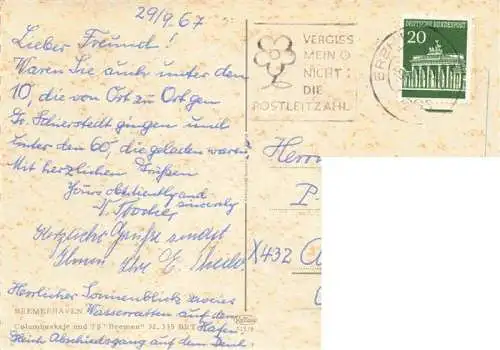 29/9.67
Lieber Freund!
Waren Sie auch unter den
10, die von Ort zu Ort gen
Gr. Schierstedt gingen und
unter den 60, die geladen waren?
Mit herzlichen Grüßen
Yours obediently and
sincerely
Herzliche Grüße sendet
Ihnen Ihre E.
Herrlicher Sonnenblick zweier
Wasserratten auf dem
Hafen
Abschiedsgang auf dem
BREMERHAVEN
Columbuskaje und TS "Bremen"
VERGISS
MEIN
NICHT
DIE
POSTLEITZAHL
DEUTSCHE BUNDESPOST
20
Herrn
P.
X432 A